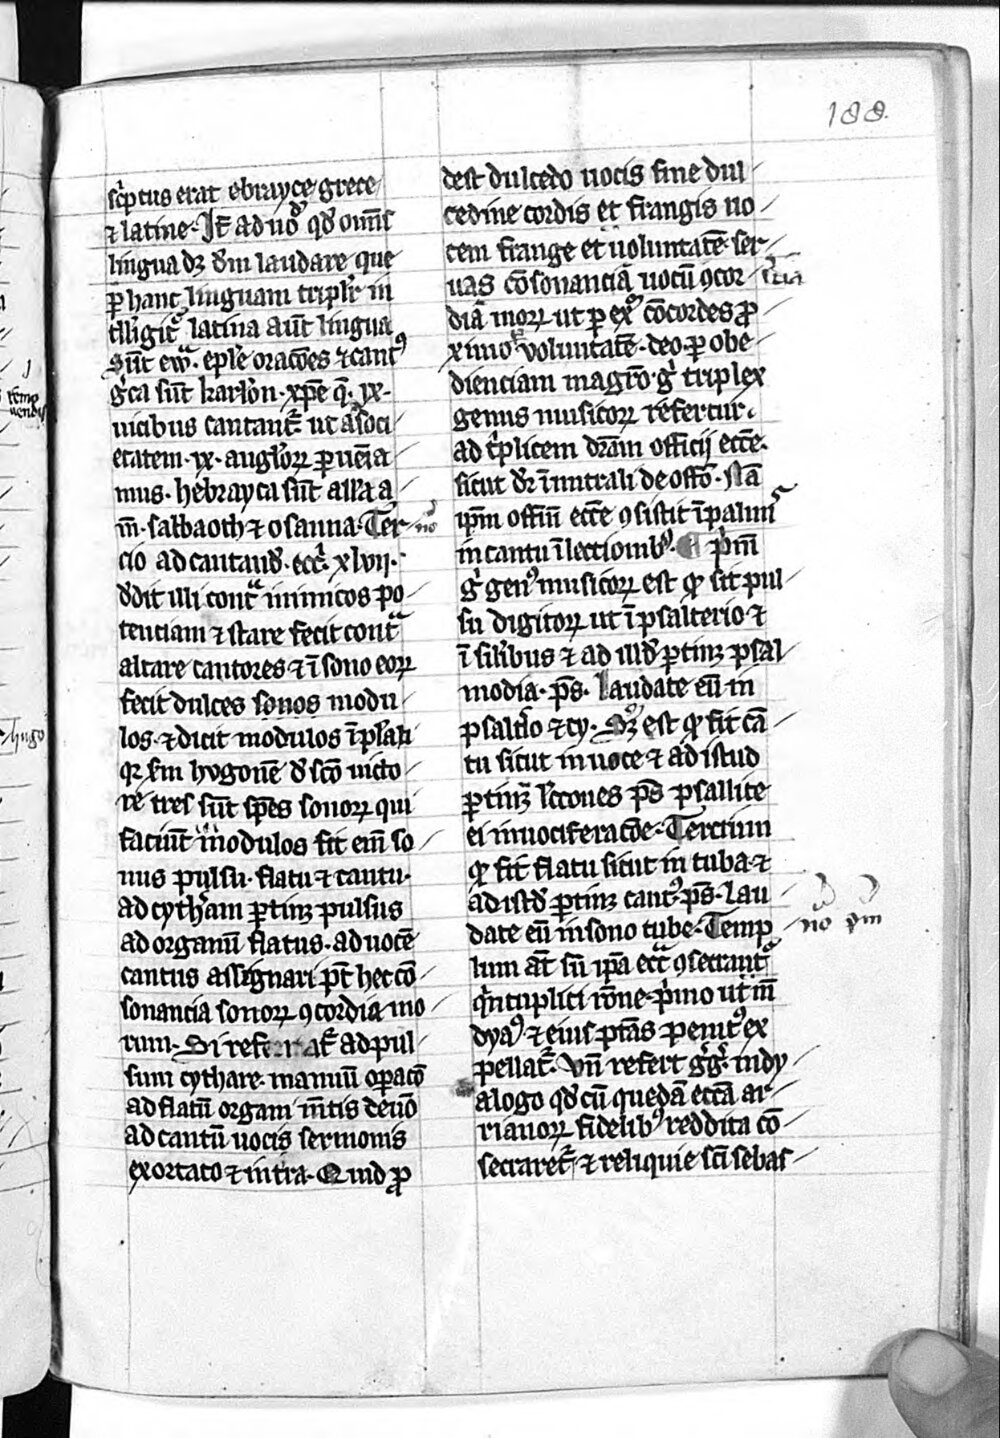 188.
sc̍ptus erat ebrayce grece
⁊ latine. Jt̄ ad uoꝫ qd̓ om̄s
lingua dꝫ dm̄ laudare que
ꝑ hanc linguam triplr̓ in
tll̓igit᷑ latina aūt lingua
sūt ew̄. eple orac̄oes ⁊ cantꝰ
g̍ca sūt kyrlon. xpē q̄. ix.
uicibus cantant᷑ ut ad soci
etatem .ix. anglo̓ꝝ ꝑueīa
mus. hebrayca sūt alla a
m̄. sabaoth ⁊ osanna. Ter
cio ad cantand̓. ecc̄i xlvij.
d̓dit illi cont̄ inimicos po
tenciam ⁊ stare fecit cont̄
altare cantores ⁊ ī sono eoꝝ
fecit dulces sonos modu
los. ⁊ dicit modulos ī plāli
qꝛ sm̄ hvgonē d̓ scō victo
re tres sūt sp̄es sonoꝝ qui
faciūt modulos fit em̄ so
nus pulsu. flatu ⁊ cantu.
ad cytharam ꝑtinꝫ pulsus
ad organū flatus. ad uocē
cantus assignari pt̄ hec cō
sonancia sonoꝝ ꝯcordia mo
rum. Si referat᷑ ad pul
sum cythare. manuū oꝑacō
ad flatū organi mētis deuō
ad cantū uocis sermonis
exortato ⁊ infra. Quid ꝓ
dest dulcedo uocis sine dul
cedine cordis et frangis uo
cem frange et uoluntatē. ser
uas cōsonanciā uocū ꝯcor
diā moꝝ ut ꝑ exꝫ cōcordes ꝓ
ximo voluntatē. deo ꝑ obe
dienciam magrō. g̍ triplex
genus musicoꝝ refertur.
ad t̍plicem dr̄am officij ecc̄e.
sicut dr̄ ī introli de offō. Nā
ipm̄ offm̄ ecc̄e ꝯsistit ī palmis
in cantu ī lectionibꝰ. ¶ p̍m̄
g̍ genꝰ musicoꝝ est qd̓ fit pul
su digitoꝝ ut ī psalterio ⁊
ī silibus ⁊ ad illd̓ ꝑtinꝫ psal
modia. ps̄. Laudate eū in
psaltio ⁊ cy. Scd̓m est qd̓ fit cā
tu sicut in uoce ⁊ ad istud
ꝑtinꝫ lc̄cones ps̄ psallite
ei in uociferacōe. Tercium
qd̓ fit flatu sicut in tuba ⁊
ad istd̓ ꝑtinꝫ cantꝰ. ps̄. Lau
date eū in sono tube. Temp
lum at̄ sū ip̄a ecc̄ia ꝯsecrant᷑
q̍ntuplici rōne. p̍mo ut in̄
dyaꝰ ⁊ eius ptās penitꝰ ex
pellat᷑. Vn̄ refert g̍g̍. in dy
alogo qd̓ cū quedā ecc̄a ar
rianoꝝ fidelibꝰ reddita cō
secraret᷑ ⁊ reliquie sc̄i sebas
no p̍m